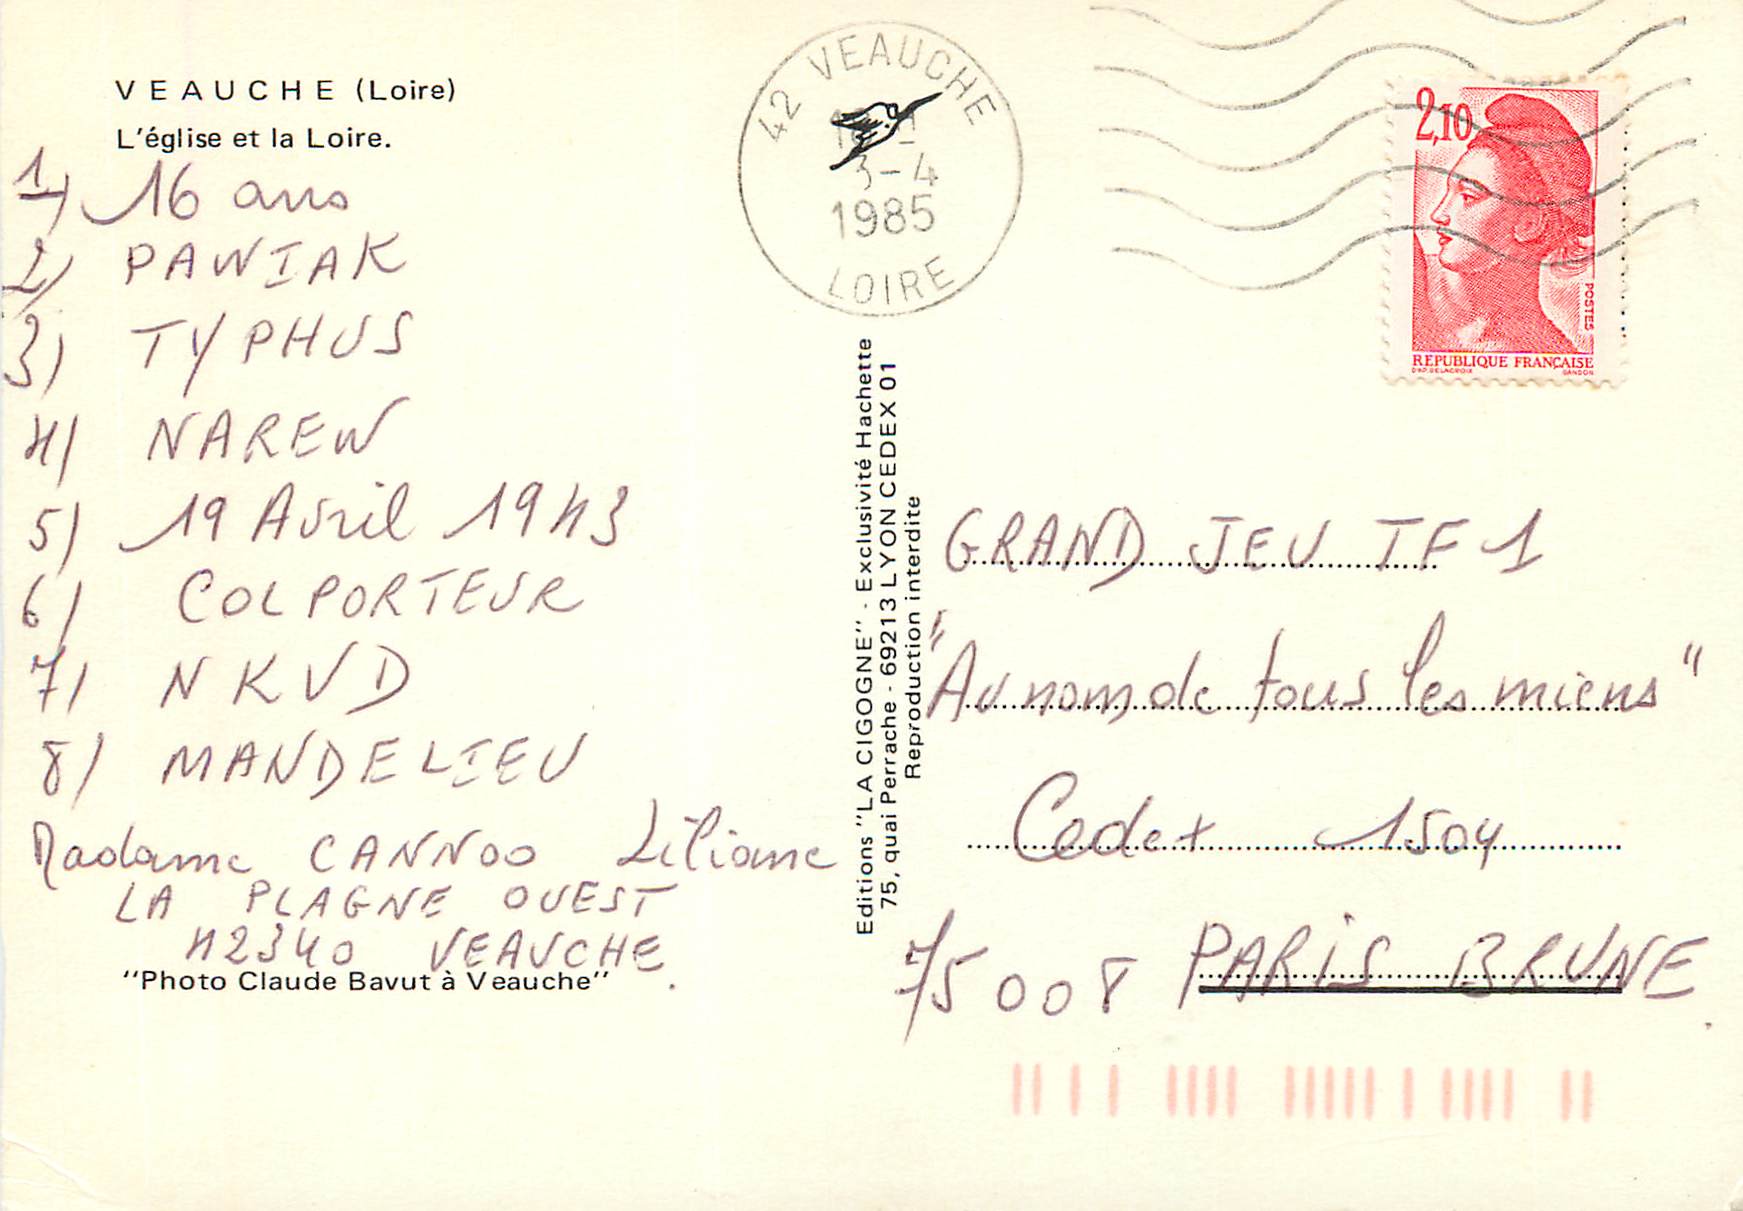 VEAUCHE (Loire)
L'église et la Loire.
1) 16 ans
2) PAWIAK
3) TYPHUS
4) NAREW
5) 19 Avril 1943
6) COLPORTEUR
7) NKVD
8) MANDELIEU
Madame CANNOO Liliane
LA PLAGNE OUEST
42340 VEAUCHE.
"Photo Claude Bavut à Veauche"
42 VEAUCHE
3-4
1985
LOIRE
Editions "LA CIGOGNE" - Exclusivité Hachette
75, quai Perrache - 69213 LYON CEDEX 01
Reproduction interdite
2,10
POSTES
REPUBLIQUE FRANÇAISE
D'AP. DELACROIX GANDON
GRAND JEU TF1
"Au nom de tous les miens"
Cedex 1504
75008 PARIS BRUNE.